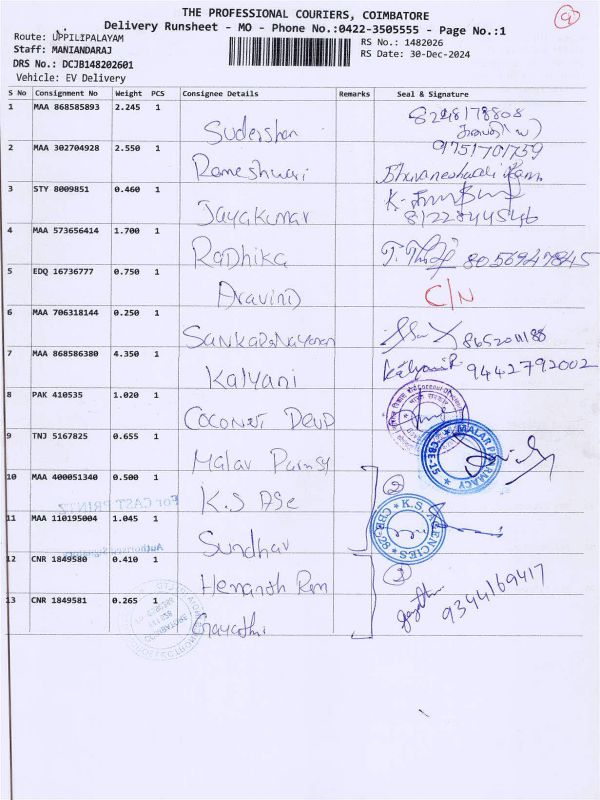 THE PROFESSIONAL COURIERS, COIMBATORE
Delivery Runsheet - MO - Phone No.:0422-3505555 - Page No.:1
Route: UPPILIPALAYAM
Staff: MANIANDARAJ
DRS No.: DCJB148202601
Vehicle: EV Delivery
RS No.: 1482026
RS Date: 30-Dec-2024
S No Consignment No Weight PCS Consignee Details Remarks Seal & Signature
1 MAA 868585893 2.245 1 Sudershan 8248178808
2 MAA 302704928 2.550 1 Rameshwari 9751701759
3 STY 8009851 0.460 1 Jayakumar 8122844546
4 MAA 573656414 1.700 1 Radhika 8056947845
5 EDQ 16736777 0.750 1 Aravind C/N
6 MAA 706318144 0.250 1 Sankaranayanan
7 MAA 868586380 4.350 1 Kalyani Kalyani R 9442792002
8 PAK 410535 1.020 1 Coconut
9 TNJ 5167825 0.655 1 Malar MALAR PHARMACY CBE-15
10 MAA 400051340 0.500 1 K.S K.S. AGENCIES
11 MAA 110195004 1.045 1 Sundhar
12 CNR 1849580 0.410 1 Hemanth Ram
13 CNR 1849581 0.265 1 Gayathri 9344169417
For CAST PRINTZ
Authorised